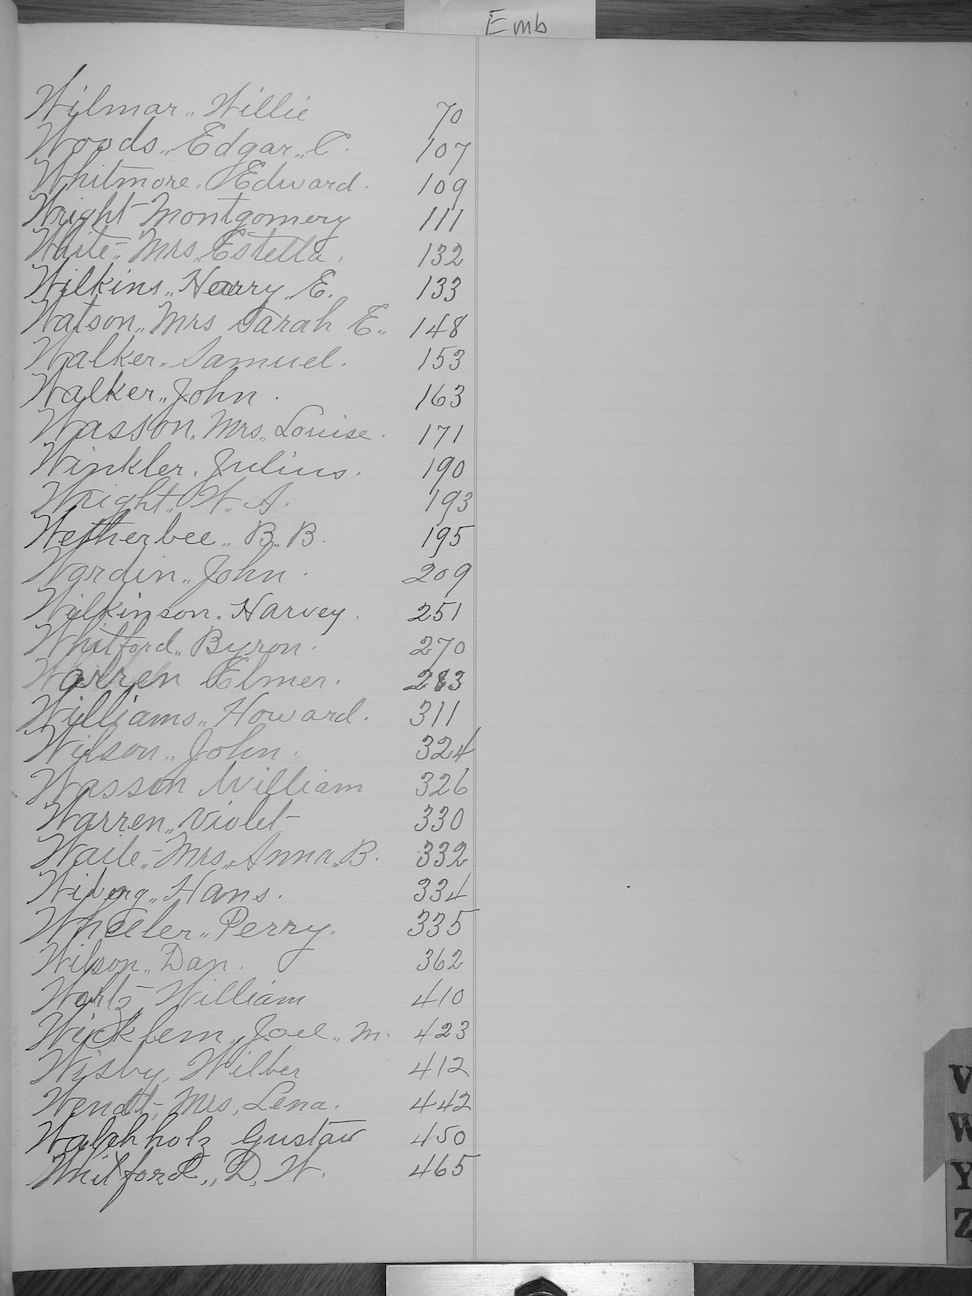 Emb
Wilmar,, Willie 70
Woods,, Edgar,, C. 107
Whitmore, Edward. 109
Wright- Montgomery 111
White,- Mrs,, Estella. 132
Wilkins,, Harry,, E. 133
Watson,, Mrs Sarah E,, 148
Walker,, Samuel. 153
Walker,, John. 163
Wasson, Mrs,, Louise. 171
Winkler, Julius. 190
Wright,, W. A. 193
Wetherbee,, B. B. 195
Wardin,, John. 209
Wilkinson, Harvey. 251
Whitford,, Byron. 270
Warren Elmer. 283
Williams,, Howard. 311
Wilson,, John. 324
Wasson William 326
Warren,, Violet- 330
Waite,- Mrs,, Anna,, B. 332
Wiberg,, Hans. 334
Wheeler,, Perry. 335
Wilson,, Dan. 362
William 410
Joel,, M. 423
Wisby, Wilber 412
Wendt,- Mrs, Lena. 442
Walchholz Gustav 450
Whitford,, D. W. 465
V
W
Y
Z